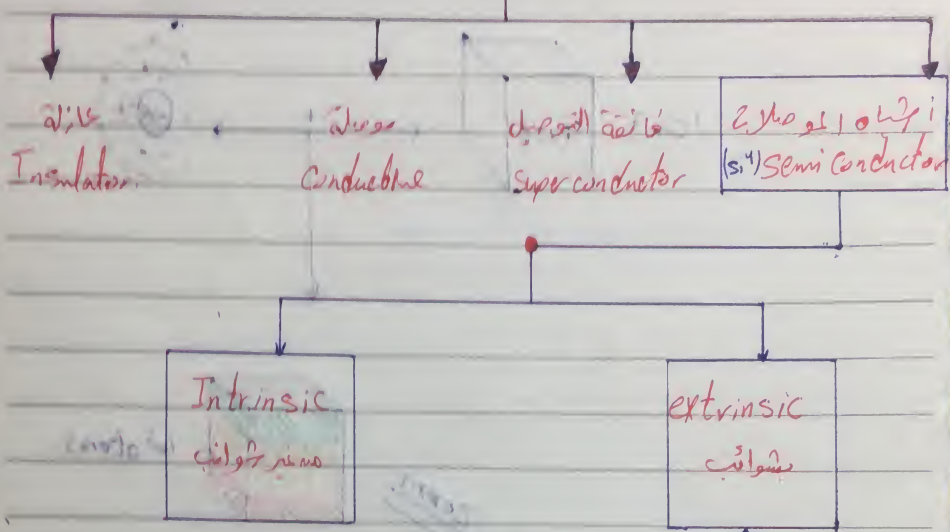 عازلة
Insulator
موصلة
Conductive
فائقة التوصيل
Super conductor
أشباه الموصلات
Semi Conductor
Intrinsic
من غير شوائب
extrinsic
بشوائب